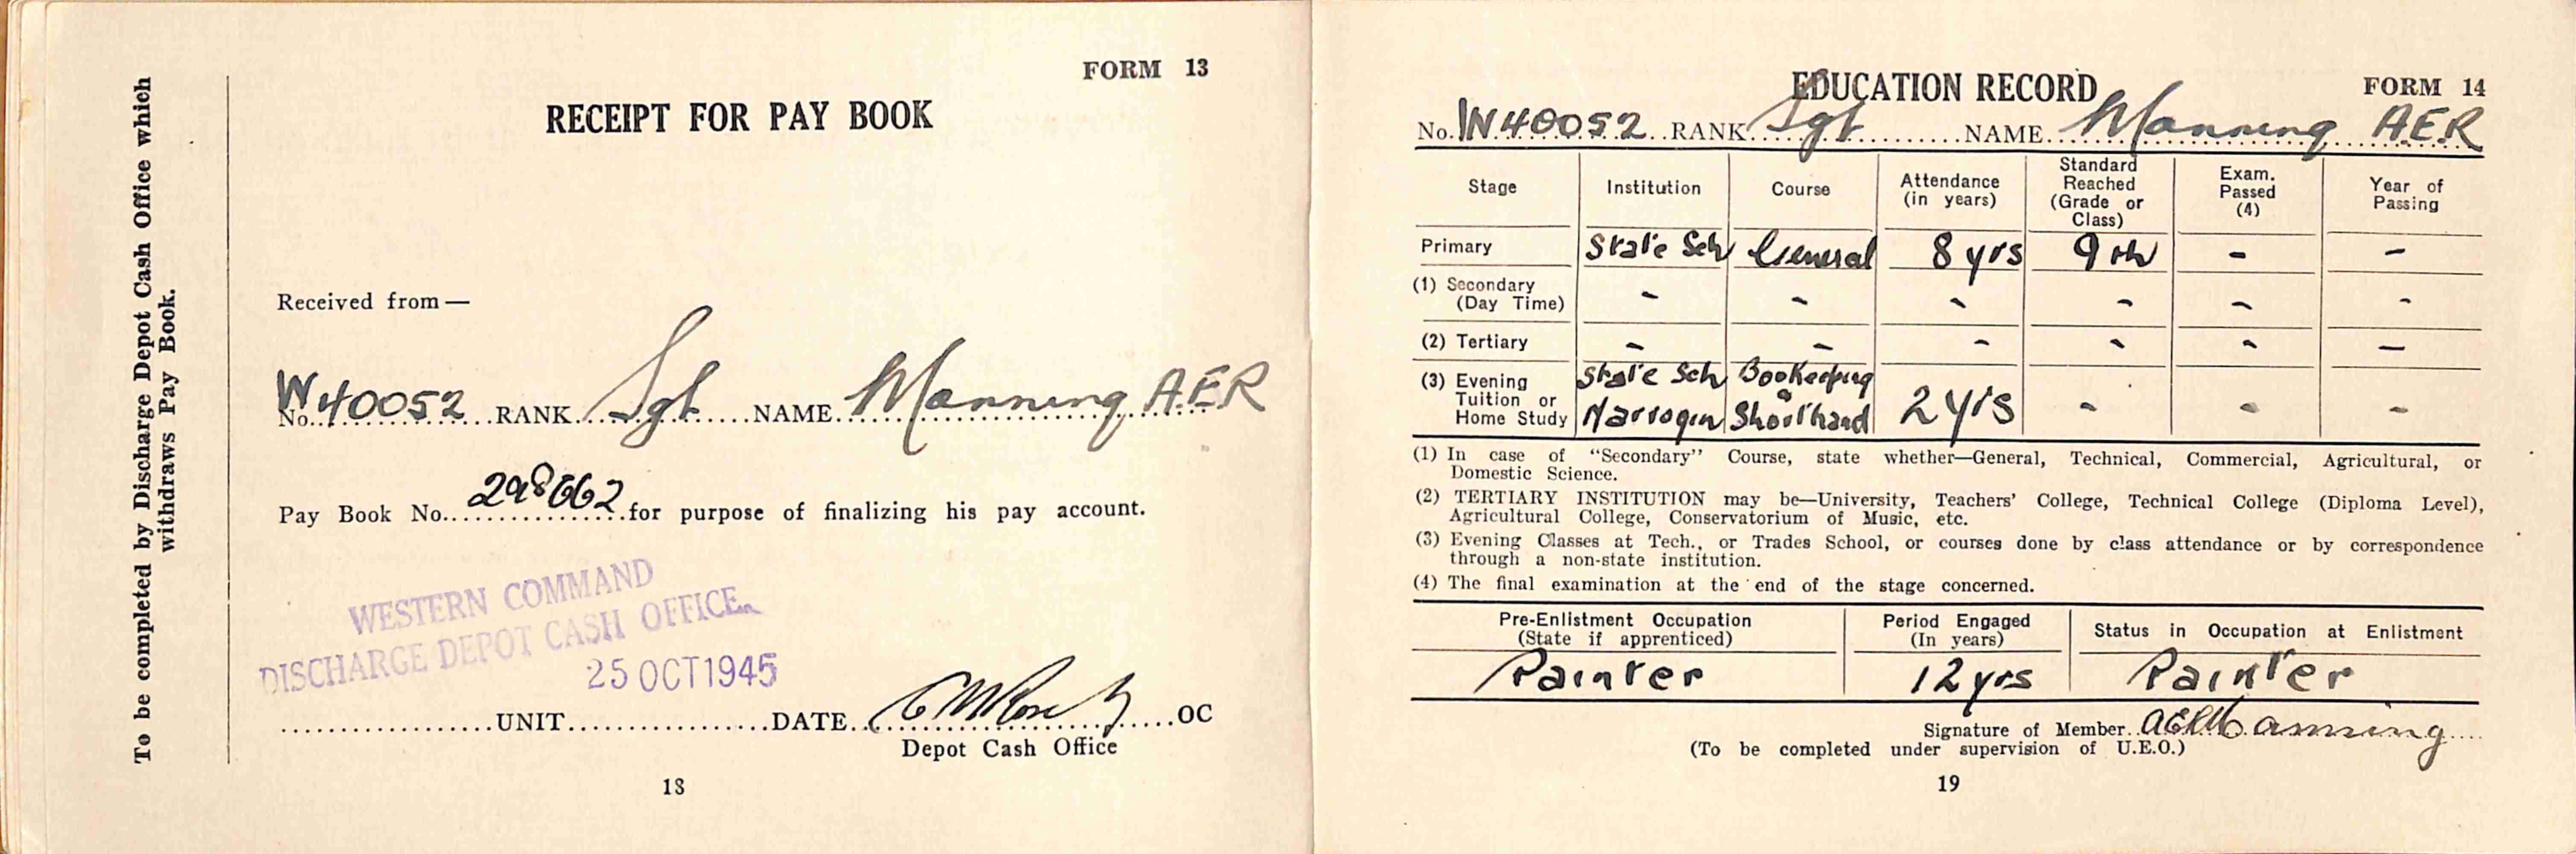 To be completed by Discharge Depot Cash Office which
withdraws Pay Book.
FORM 13
RECEIPT FOR PAY BOOK
Received from —
No. W40052 RANK Sgt NAME Manning A.E.R
Pay Book No. 298662 for purpose of finalizing his pay account.
WESTERN COMMAND
DISCHARGE DEPOT CASH OFFICE
25 OCT 1945
UNIT DATE OC
Depot Cash Office
18
EDUCATION RECORD
FORM 14
No. W40052 RANK Sgt NAME Manning A.E.R
Stage Institution Course Attendance (in years) Standard Reached (Grade or Class) Exam. Passed (4) Year of Passing
Primary State Sch General 8 yrs 9th - -
(1) Secondary (Day Time) - - - - - -
(2) Tertiary - - - - - -
(3) Evening Tuition or Home Study State Sch Narrogin Bookeeping & Shorthand 2 yrs - - -
(1) In case of "Secondary" Course, state whether—General, Technical, Commercial, Agricultural, or
Domestic Science.
(2) TERTIARY INSTITUTION may be—University, Teachers' College, Technical College (Diploma Level),
Agricultural College, Conservatorium of Music, etc.
(3) Evening Classes at Tech., or Trades School, or courses done by class attendance or by correspondence
through a non-state institution.
(4) The final examination at the end of the stage concerned.
Pre-Enlistment Occupation (State if apprenticed) Period Engaged (In years) Status in Occupation at Enlistment
Painter 12 yrs Painter
Signature of Member AERManning
(To be completed under supervision of U.E.O.)
19